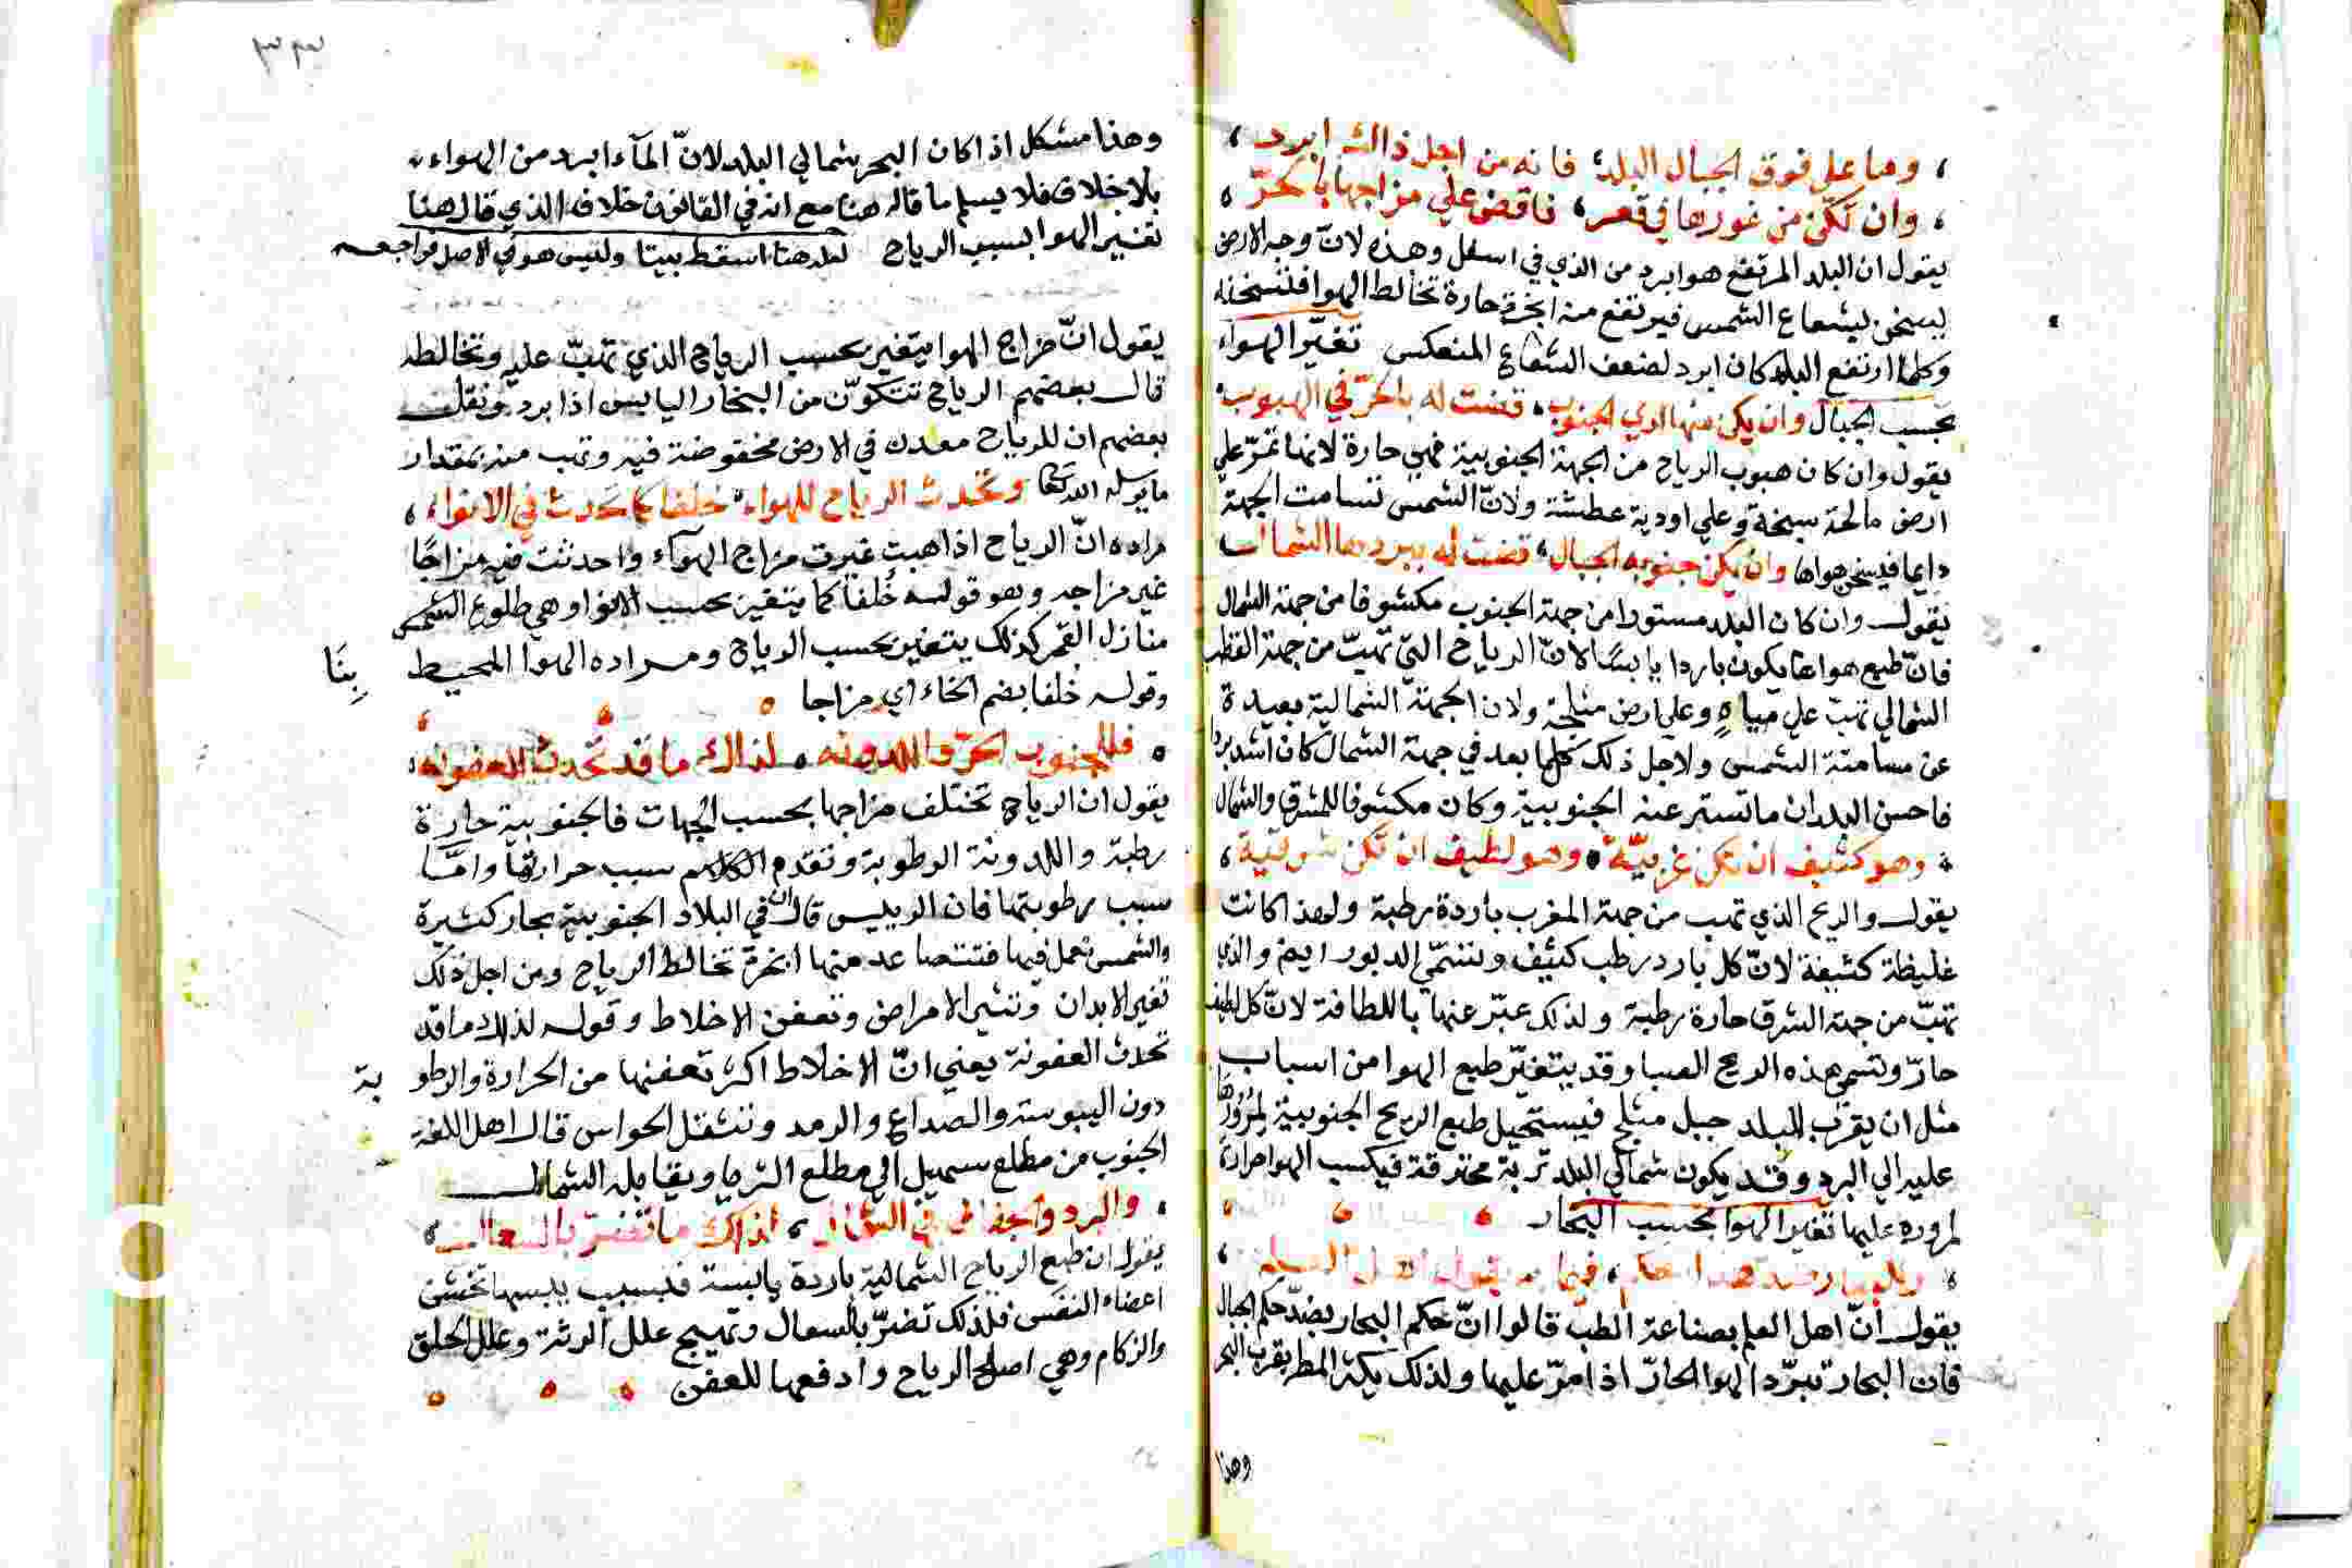 ، وما علي فوق الجبال البلد، فانه من اجل ذاك ابرد ،
، وان تكن من غورها في قعر، فاقض علي مزاجها بالحر ،
يقول ان البلد المرتفع هو ابرد من الذي في اسفل وهذه لانّ وجه الارض
يسخن بشعاع الشمس فيرتفع منه ابخرة حارة تخالط الهوا فتسخنه
وكلما ارتفع البلد كان ابرد لضعف الشعاع المنعكس تغيّر الهواء
بحسب الجبال وان يكن منها لدي الجنوب، قضت له بالحرّ في الهبوب
يقول وان كان هبوب الرياح من الجهة الجنوبية فهي حارة لانها تمرّ علي
ارض مالحة سبخة وعلي اودية عطشة ولانّ الشمس تسامت الجهة
دايما فيسخن هواها وان يكن جنوبه الجبال، قضت له ببردها الشمال
يقول وان كان البلد مستورا من جهة الجنوب مكشوفا من جهة الشمال
فانّ طبع هواها يكون باردا يابسًا لانّ الرياح التي تهبّ من جهة القطب
الشمالي تهبّ علي مياهٍ وعلي ارض مثلجة ولان الجهة الشمالية بعيدة
عن مسامتة الشمس ولاجل ذلك كلما بعد في جهة الشمال كان اشد بردا
فاحسن البلدان ما تستر عنه الجنوبية وكان مكشوفا للمشرق والشمال
، وهو كثيف ان تكن غربيّة، وهو لطيف ان تكن شرقية ،
يقول والريح الذي تهب من جهة المغرب باردة رطبة ولهذا كانت
غليظة كثيفة لانّ كل بارد رطب كثيف وتسمّي الدبور ايضا والذي
تهبّ من جهة الشرق حارة رطبة ولذلك عبّر عنها باللطافة لانّ كل لطيف
حارّ وتسمي هذه الريح الصبا وقد يتغيّر طبع الهوا من اسباب
مثل ان يقرب للبلد جبل مثلج فيستحيل طبع الريح الجنوبية لمرورها
عليه الي البرد وقد يكون شمالي البلد تربة محترقة فيكسب الهوا حرارة
لمروره عليها تغير الهوا بحسب البحار
يقول انّ اهل العلم بصناعة الطبّ قالوا انّ حكم البحار بضدّ حكم الجبال
فان البحار تبرّد الهوا الحارّ اذا مرّ عليها ولذلك يكثر المطر بقرب البحر
وهذا
٣٣
وهذا مشكل اذا كان البحر شمالي البلد لانّ المآء ابرد من الهواء
بلا خلاف فلا يسلم ما قاله هنا مع انه في القانون خلافه الذي قال هنا
تغيير الهوا بسبب الرياح لعله هنا اسقط بيتا وليس هو في الاصل فراجعه
يقول انّ مزاج الهوا يتغير بحسب الرياح الذي تهبّ عليه وتخالطه
قال بعضهم الرياح تتكوّن من البخار اليابس اذا برد ونقل
بعضهم ان للرياح معدن في الارض مخفوضة فيه وتهب منه بمقدار
ما يرسله الله تعالى وتحدث الرياح للهواء، خلفا كما تحدث في الانواء ،
مراده انّ الرياح اذا هبت غيرت مزاج الهوآء واحدثت فيه مزاجًا
غير مزاجه وهو قوله خُلفا كما يتغير بحسب الانوا وهي طلوع الشمس
منازل القمر كذلك يتغير بحسب الرياح ومراده الهوا المحيط بِنَا
وقوله خلفا بضم الخاء اي مزاجا
، فللجنوب الحرّ واللدونه ، لذاك ما قد تحدث العفونه ،
يقول ان الرياح تختلف مزاجها بحسب الجهات فالجنوبية حارة
رطبة واللدونة الرطوبة وتقدم الكلام سبب حرارتها وامّا
سبب رطوبتها فان الرييس قال ان في البلاد الجنوبية بحار كثيرة
والشمس تعمل فيها فتتصاعد منها ابخرة تخالط الرياح ومن اجل ذلك
تغير الابدان وتثير الامراض وتعفن الاخلاط وقوله لذاك ما قد
تحدث العفونة يعني انّ الاخلاط اكثر تعفنها من الحرارة والرطو بة
دون اليبوسة والصداع والرمد وتثقل الحواس قال اهل اللغة
الجنوب من مطلع سهيل الي مطلع الثريا ويقابله الشمال
، والبرد والجفاف في الشمال ، لذاك ما تضرّ بالسعال ،
يقول ان طبع الرياح الشمالية باردة يابسة فبسبب يبسها تخشن
اعضاء النفَس فلذلك تضرّ بالسعال وتهيج علل الرئة وعلل الحلق
والزكام وهي اصلح الرياح وادفعها للعفن